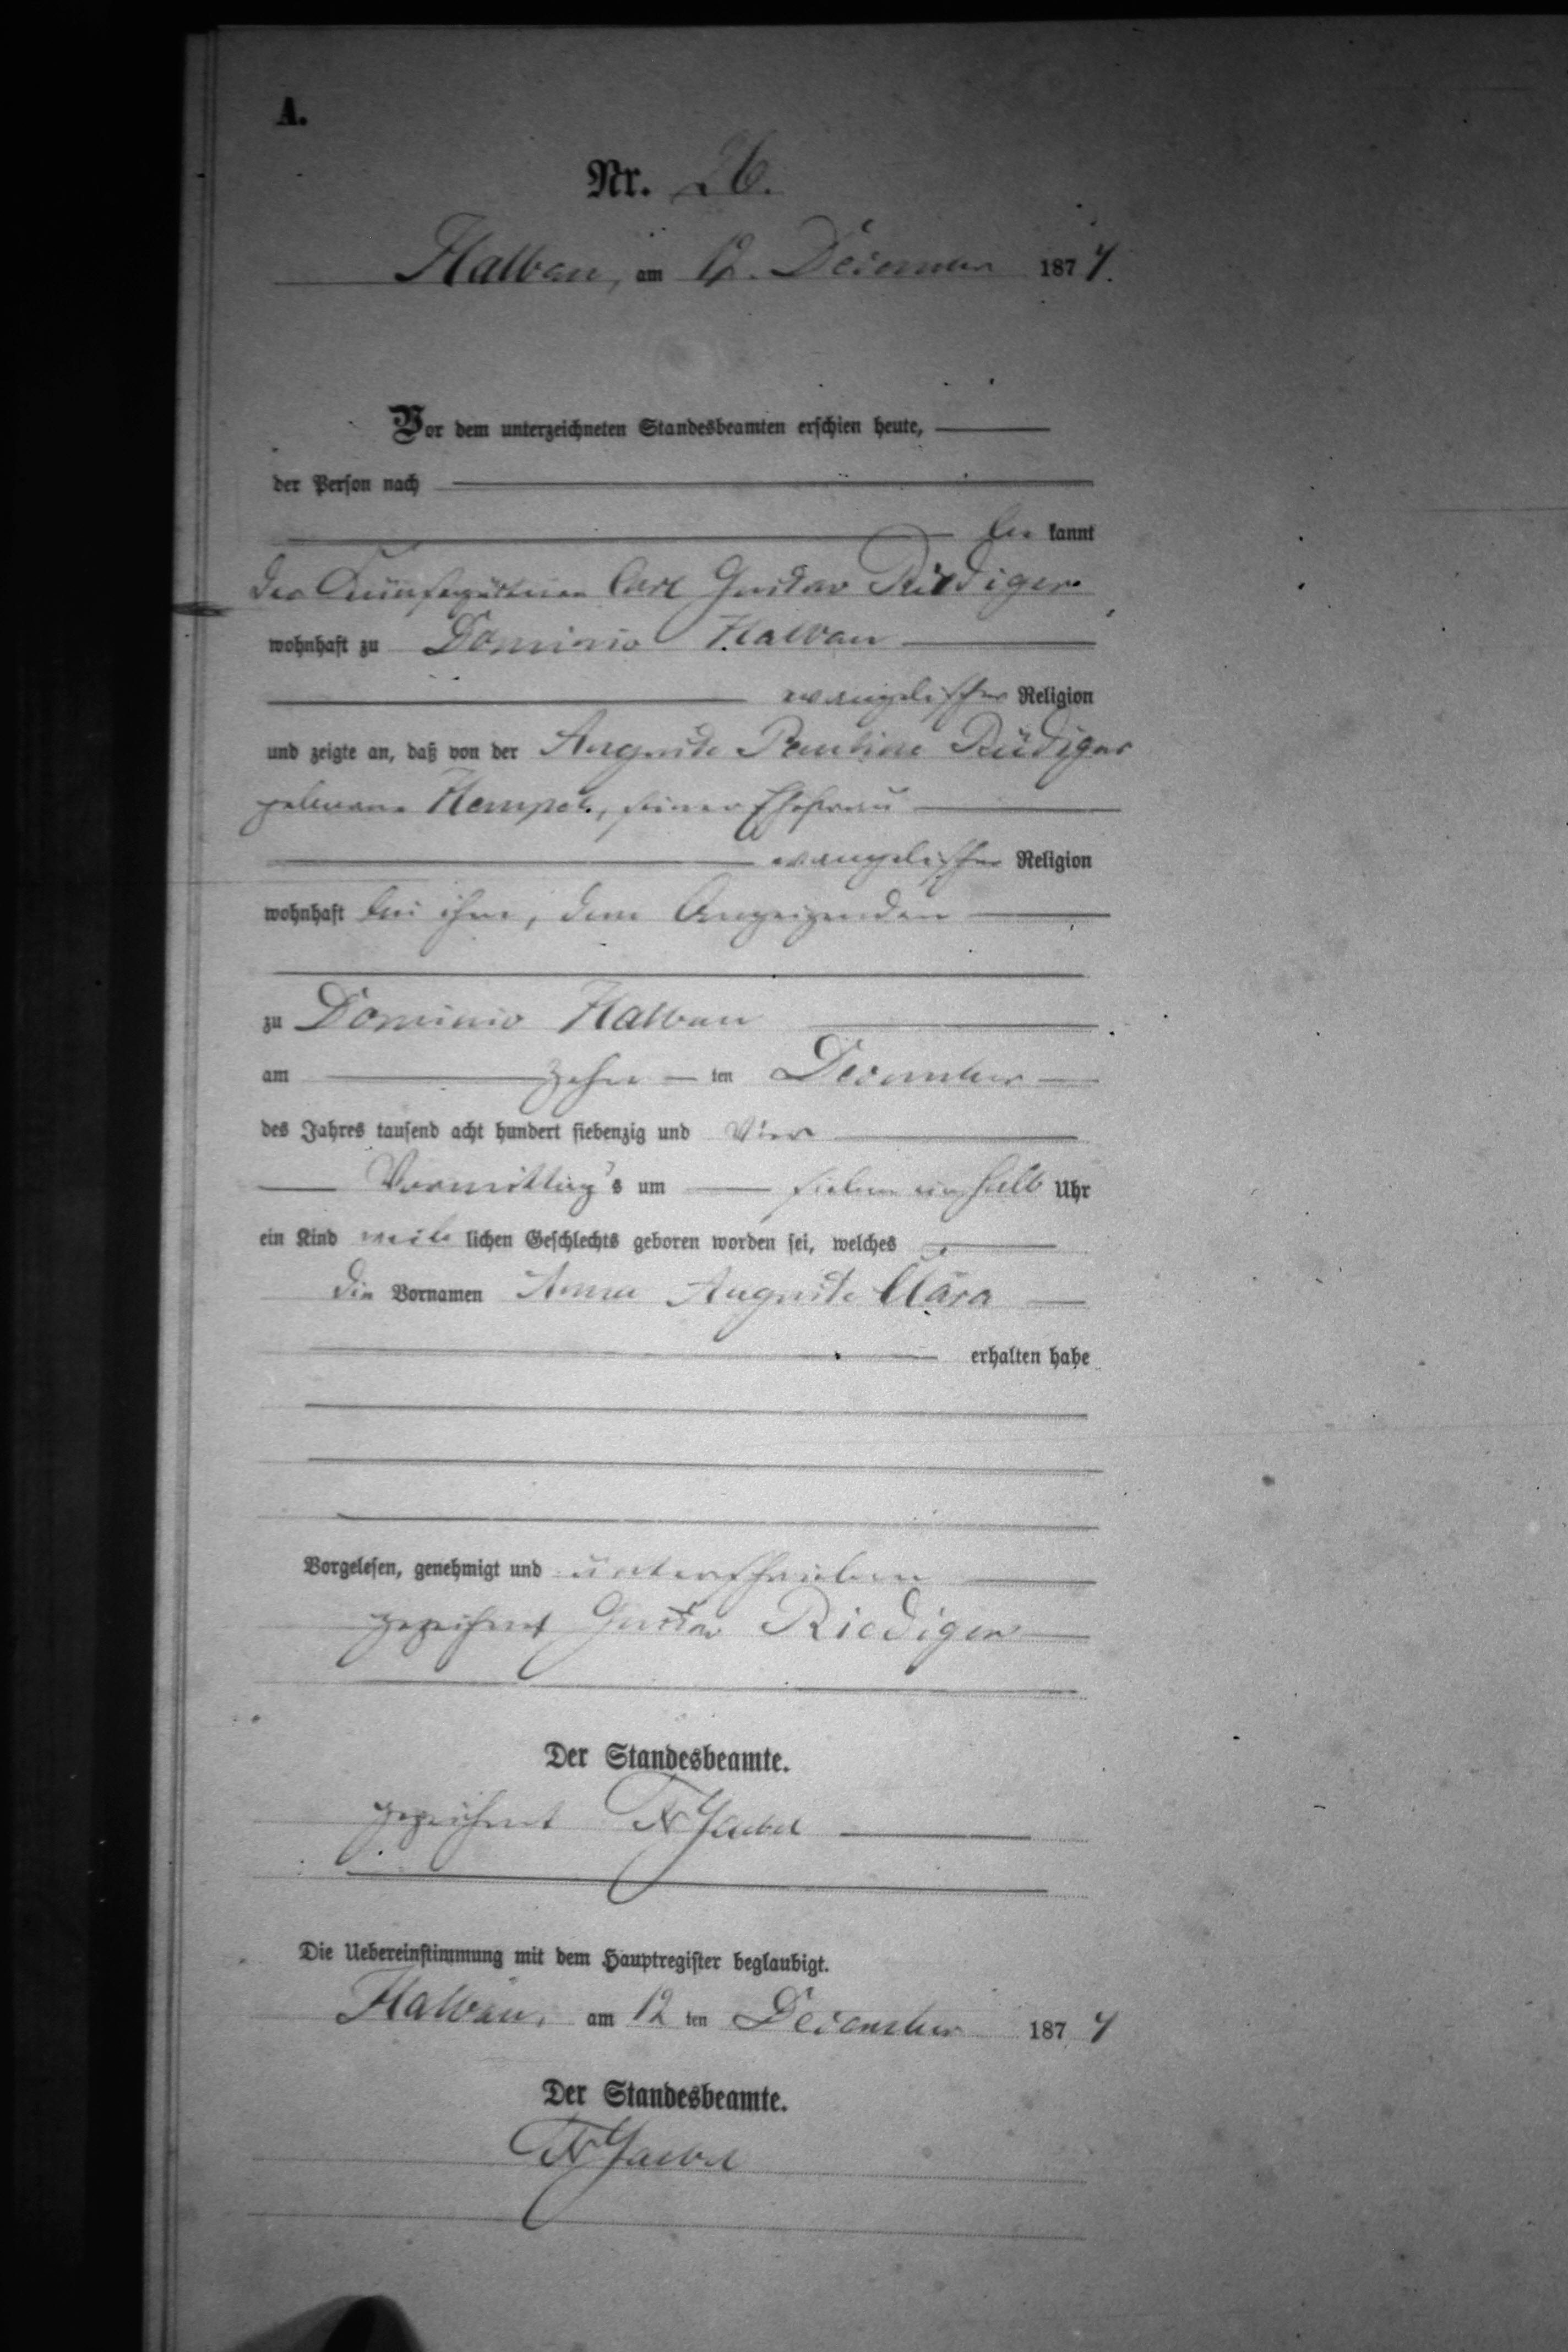 A.
Nr. 26.
Halbau, am 12. December 1874.
Vor dem unterzeichneten Standesbeamten erschien heute,
der Person nach
be kannt
der Carl Gustav Riediger
wohnhaft zu Dominio Halbau
evangelischer Religion
und zeigte an, daß von der Auguste Pauline Rüdiger
geborene Hempel, seiner Ehefrau
evangelischer Religion
wohnhaft bei ihm, dem Anzeigenden
zu Dominio Halbau
am zehn ten December
des Jahres tausend acht hundert siebenzig und vier
Vormittag's um sieben ein halb Uhr
ein Kind weib lichen Geschlechts geboren worden sei, welches
die Vornamen Anna Auguste Clara
erhalten habe
Vorgelesen, genehmigt und unterschrieben
gezeichnet Gustav Riediger
Der Standesbeamte.
gezeichnet
Die Uebereinstimmung mit dem Hauptregister beglaubigt.
Halbau, am 12 ten December 1874
Der Standesbeamte.